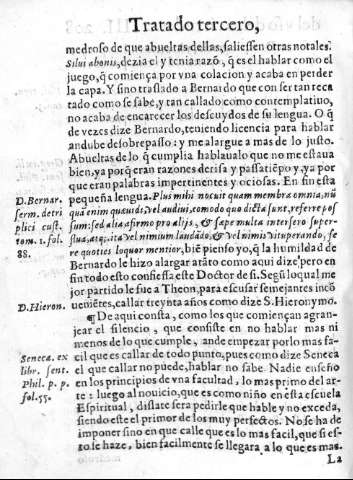 Tratado tercero,
medroso de que abueltas dellas, saliessen otras notales.
Silui abonis, dezia el y tenia razõ, q̃ es el hablar como el
juego, q̃ comiença por vna colacion y acaba en perder
la capa. Y sino traslado a Bernardo que con ser tan reca
tado como se sabe, y tan callado como contemplatiuo,
no acaba de encarecer los descuydos de su lengua. O q̃
de vezes dize Bernardo, teniendo licencia para hablar
andube desobrepasso: y me alargue a mas de lo justo.
Abueltas de lo q̃ cumplia hablaualo que no me estaua
bien, ya porq̃ eran razones de risa y passatiẽpo y, ya por
que eran palabras impertinentes y ociosas. En fin esta
D. Bernar. pequeña lengua. Plus mihi nocuit quam membra omnia, nũ
serm. de tri quã enim quæ uidi, vel audiui, eo modo quo dicta sunt, referre pos
plici cust. sum: sed alia affirmo pro alijs, & sæpe multa intersero super-
tom. 1. fol. flua, atq;, ita vel nimium laudãdo, & vel nimis vituperando, se
88. re quoties loquor mentior, biẽ pienso yo, q̃ la humildad de
Bernardo le hizo alargar arãto como aqui dize, pero en
fin todo esto confiessa este Doctor de si. Segũ lo qual me
jor partido le fue a Theon, para escusar semejantes incõ
D. Hieron. uenietes, callar treynta años como dize S. Hieronymo.
¶ De aqui consta, como los que comiençan agran-
jear el silencio, que consiste en no hablar mas ni
menos de lo que cumple, an de empezar por lo mas fa-
Seneca. ex cil que es callar de todo punto, pues como dize Seneca
libr. sent. el que callar no puede, hablar no sabe. Nadie enseño
Phil. p. p. en los principios de vna facultad, lo mas primo del ar-
fol. 55. te: luego al nouicio, que es como niño en esta escuela
Espiritual, dislate sera pedirle que hable y no exceda,
siendo este el primor de los muy perfectos. No se ha de
imponer sino en que calle que es lo mas facil, que si es-
to se haze, bien facilmente se llegara a lo que es mas.
La